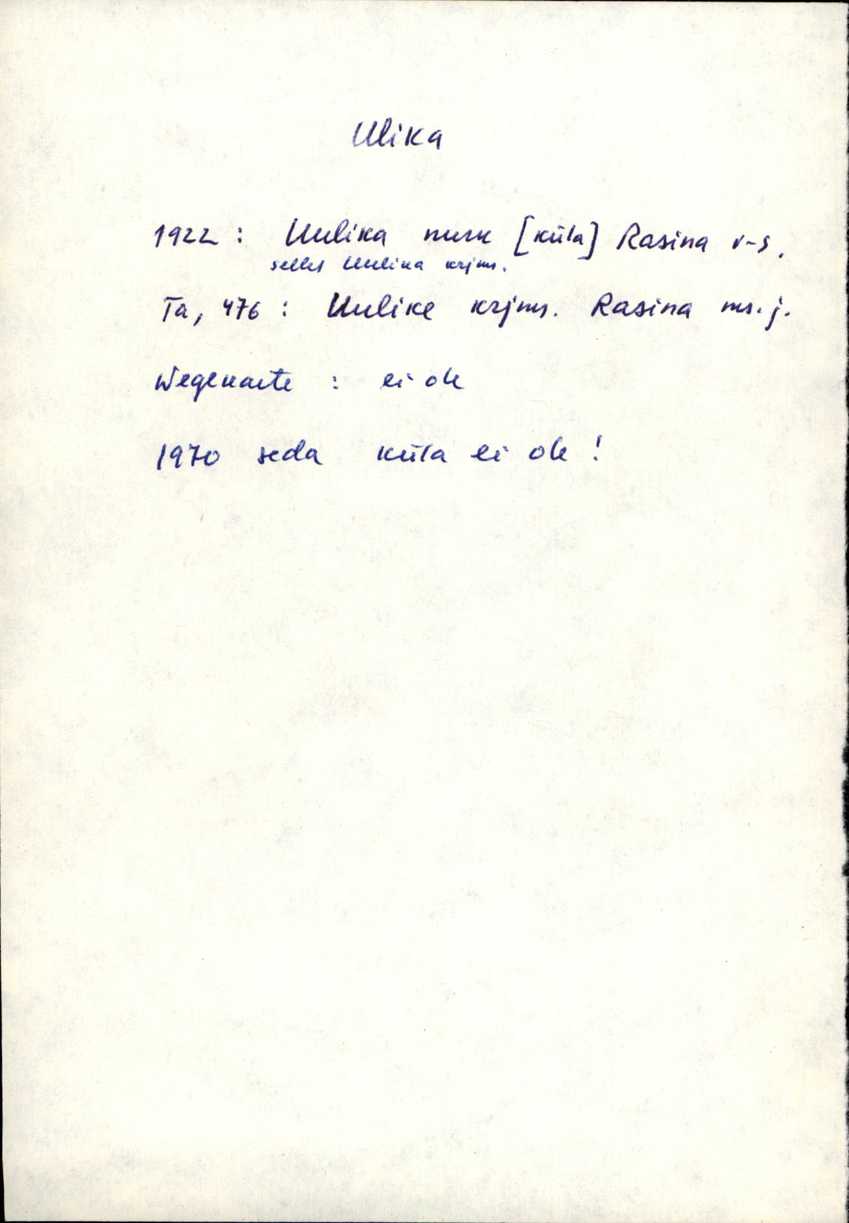 Ulika
1922 : Uulika nurk [küla] Rasina v-s.
selles Uulika krjms.
Ta, 476 : Uulike krjms. Rasina ms. j.
Wegekarte : ei ole
1970 seda küla ei ole !